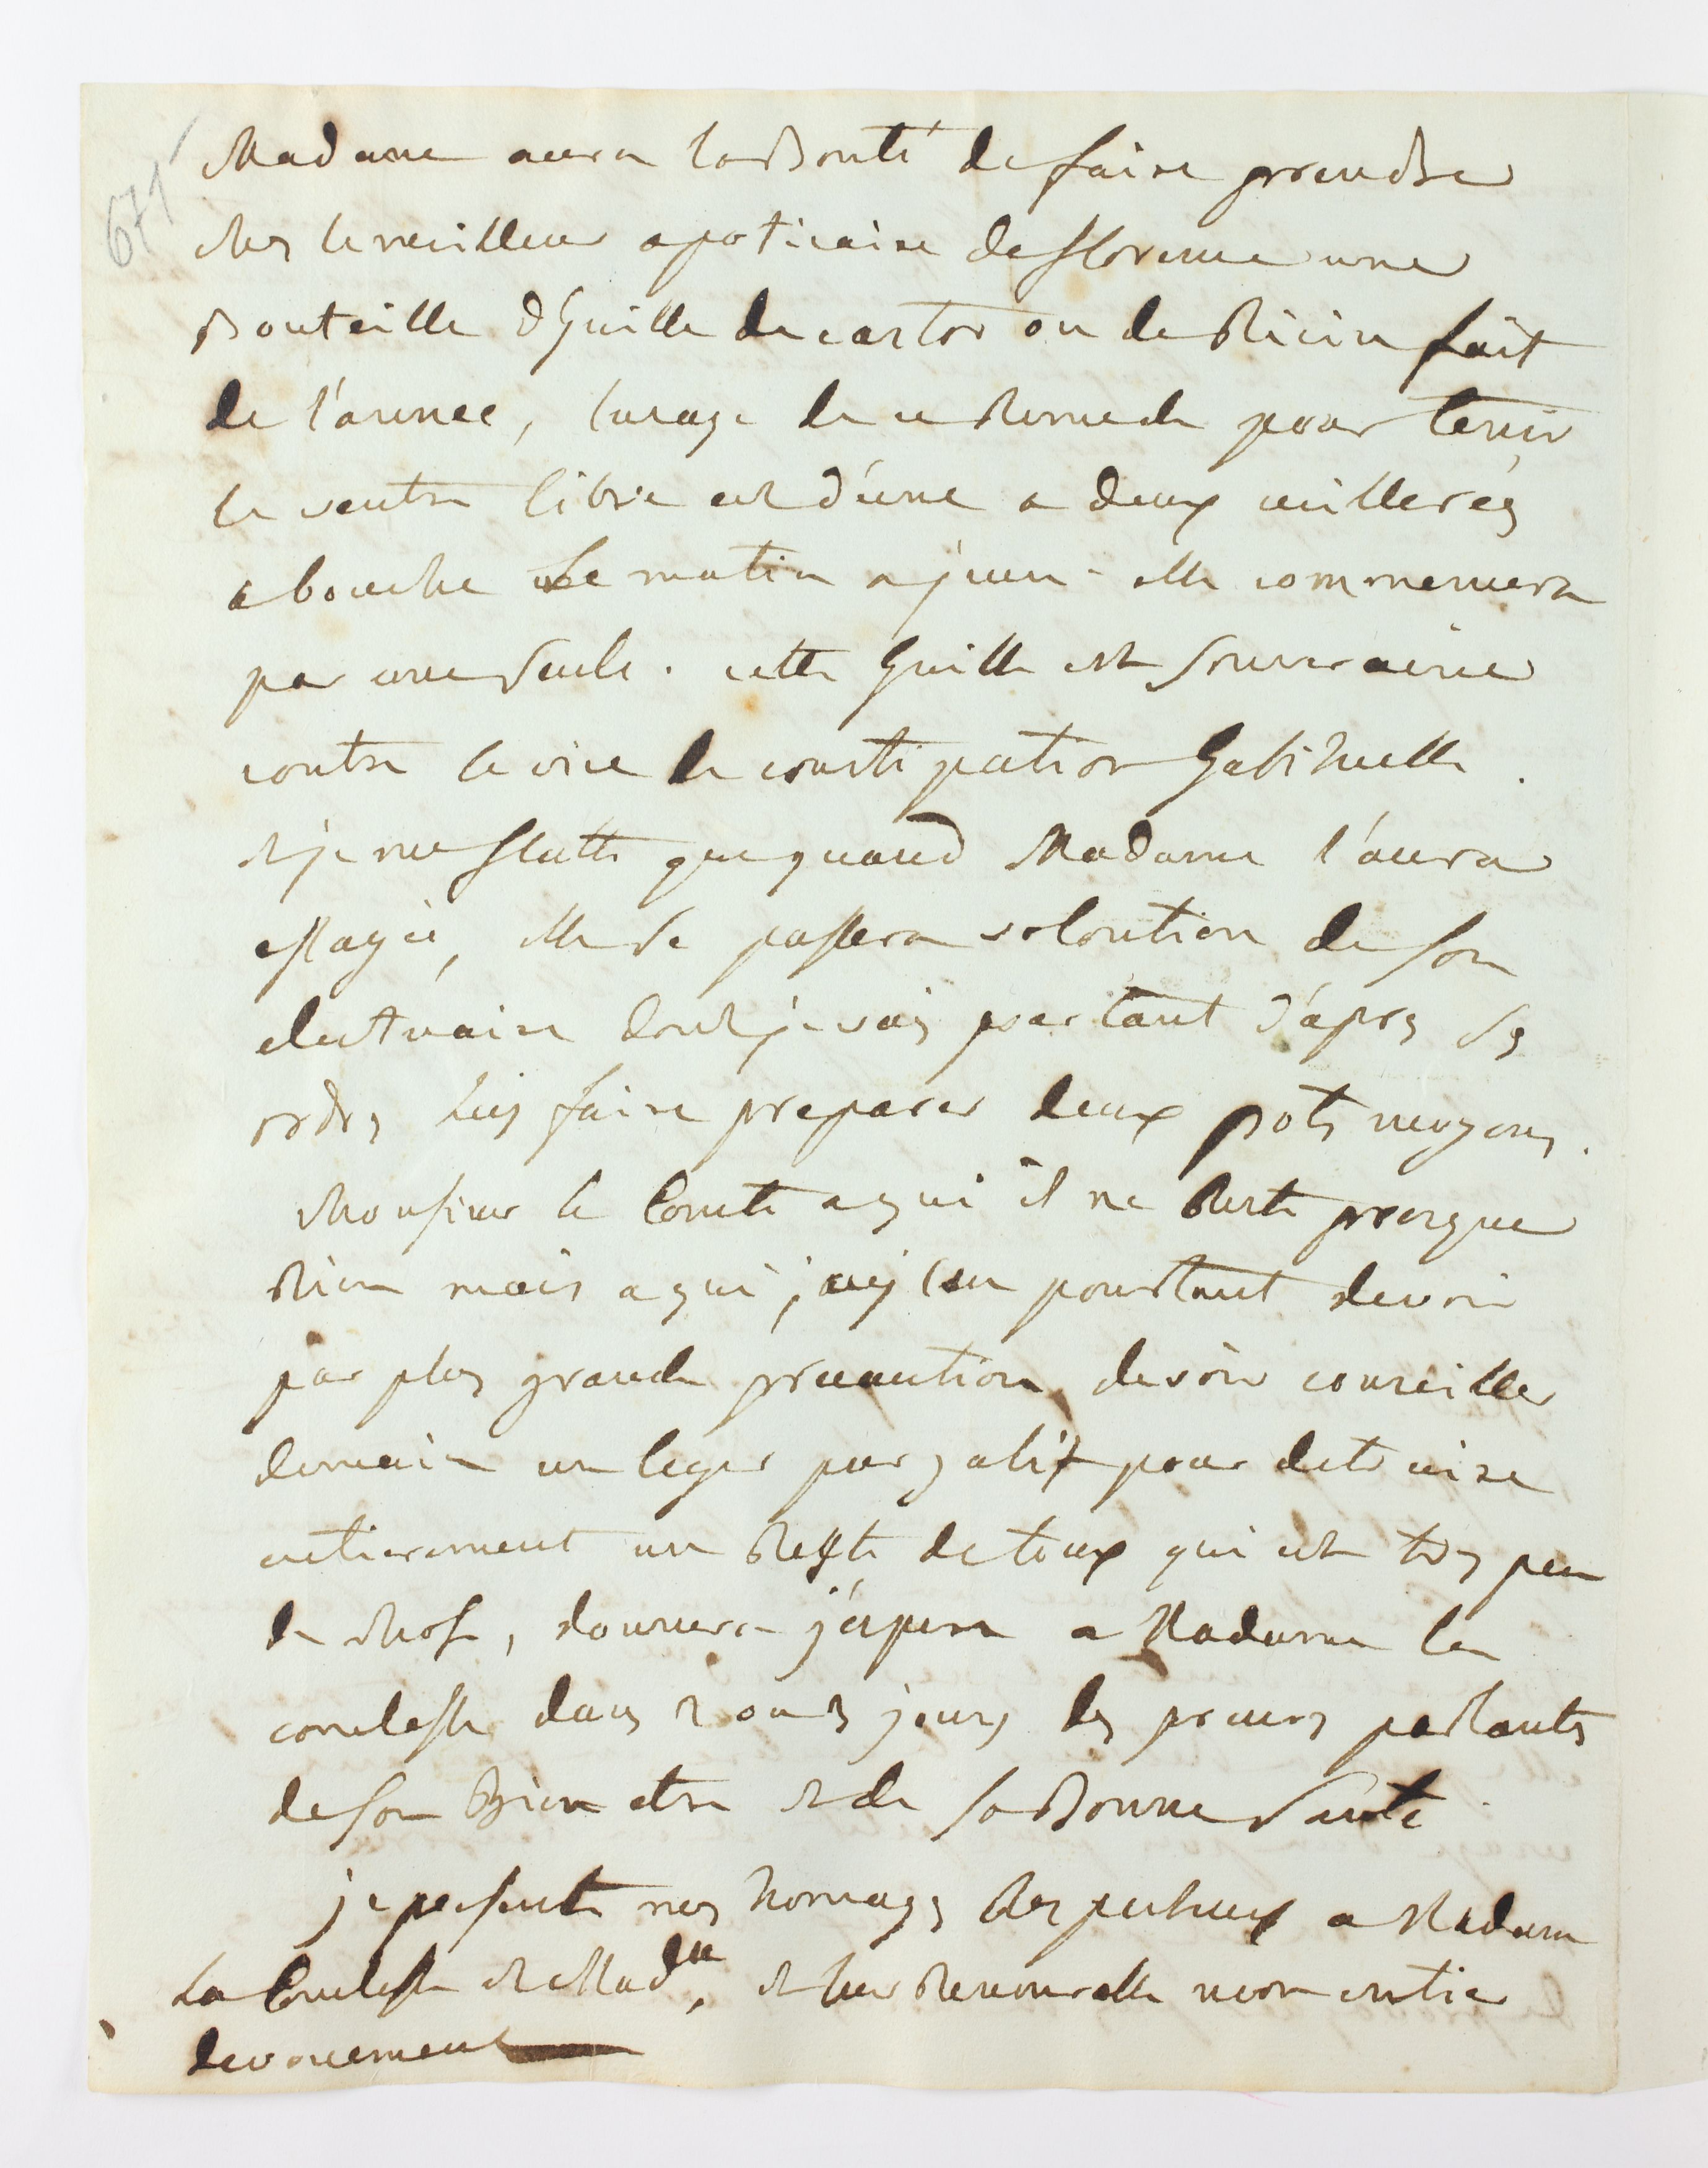 671
Madame aura la Bonté de faire prendre
ches le meilleur apoticaire de florence une
Bouteille d'huille de castor ou de Ricin fait
de l'année, l'usage de ce Remede pour tenir
le ventre libre est d'une a deux cuillerés
a bouche le matin a jeun - elle commencera
par une seule. cette huille est souveraine
contre le vice de constipation habituelle.
et je me flatte que quand Madame l'aura
essayée, elle se passera volontier de son
electuaire dont je vais partant d'après ses
ordres luy faire preparer deux pots moyens.
Monsieur le Comte a qui il ne Reste presque
Rien mais a qui j'ay cru pourtant devoir
par plus grande precaution devoir conseiller
demain un leger purgatif pour detruire
entierement un Reste de toux qui est tres peu
de chose, donnera j'espere a Madame la
comtesse dans jours des preuves parlantes
de son Bien etre et de sa Bonne santé.
je presente mes homages Respectueux a Madame
La Comtesse et Mad.lle, et leur Renouvelle mon entier
devouement